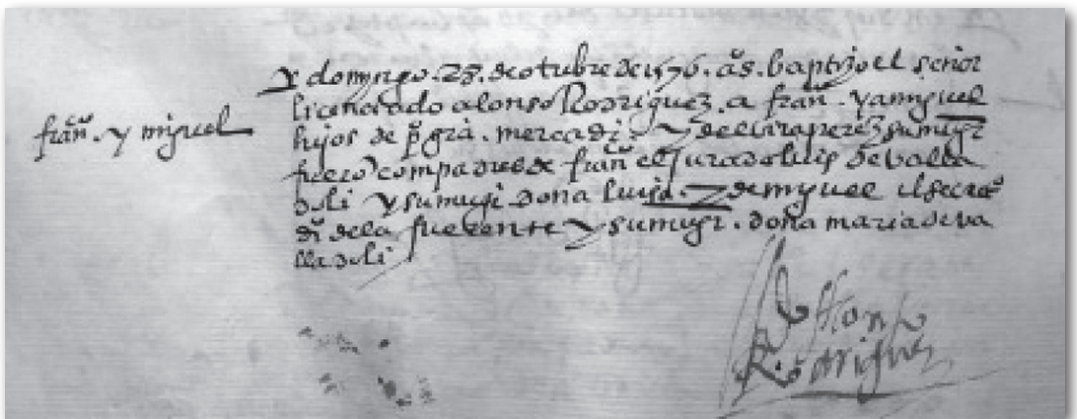 franco. y miguel
Y domyngo. 28. de otubre de 1576. as. baptizo el señor
licenciado alonso Rodriguez. a franco. y a myguel
hijos de po grā. mercader. y de elvira perez su mugr
fuerō compadres de franco el Jurado luis de valla
doli y su mugr doña luisa. y de myguel el secreo
do de la fuerente y su mugr. doña maria de va
lladoli
El Lido Alonso
Rodriguez